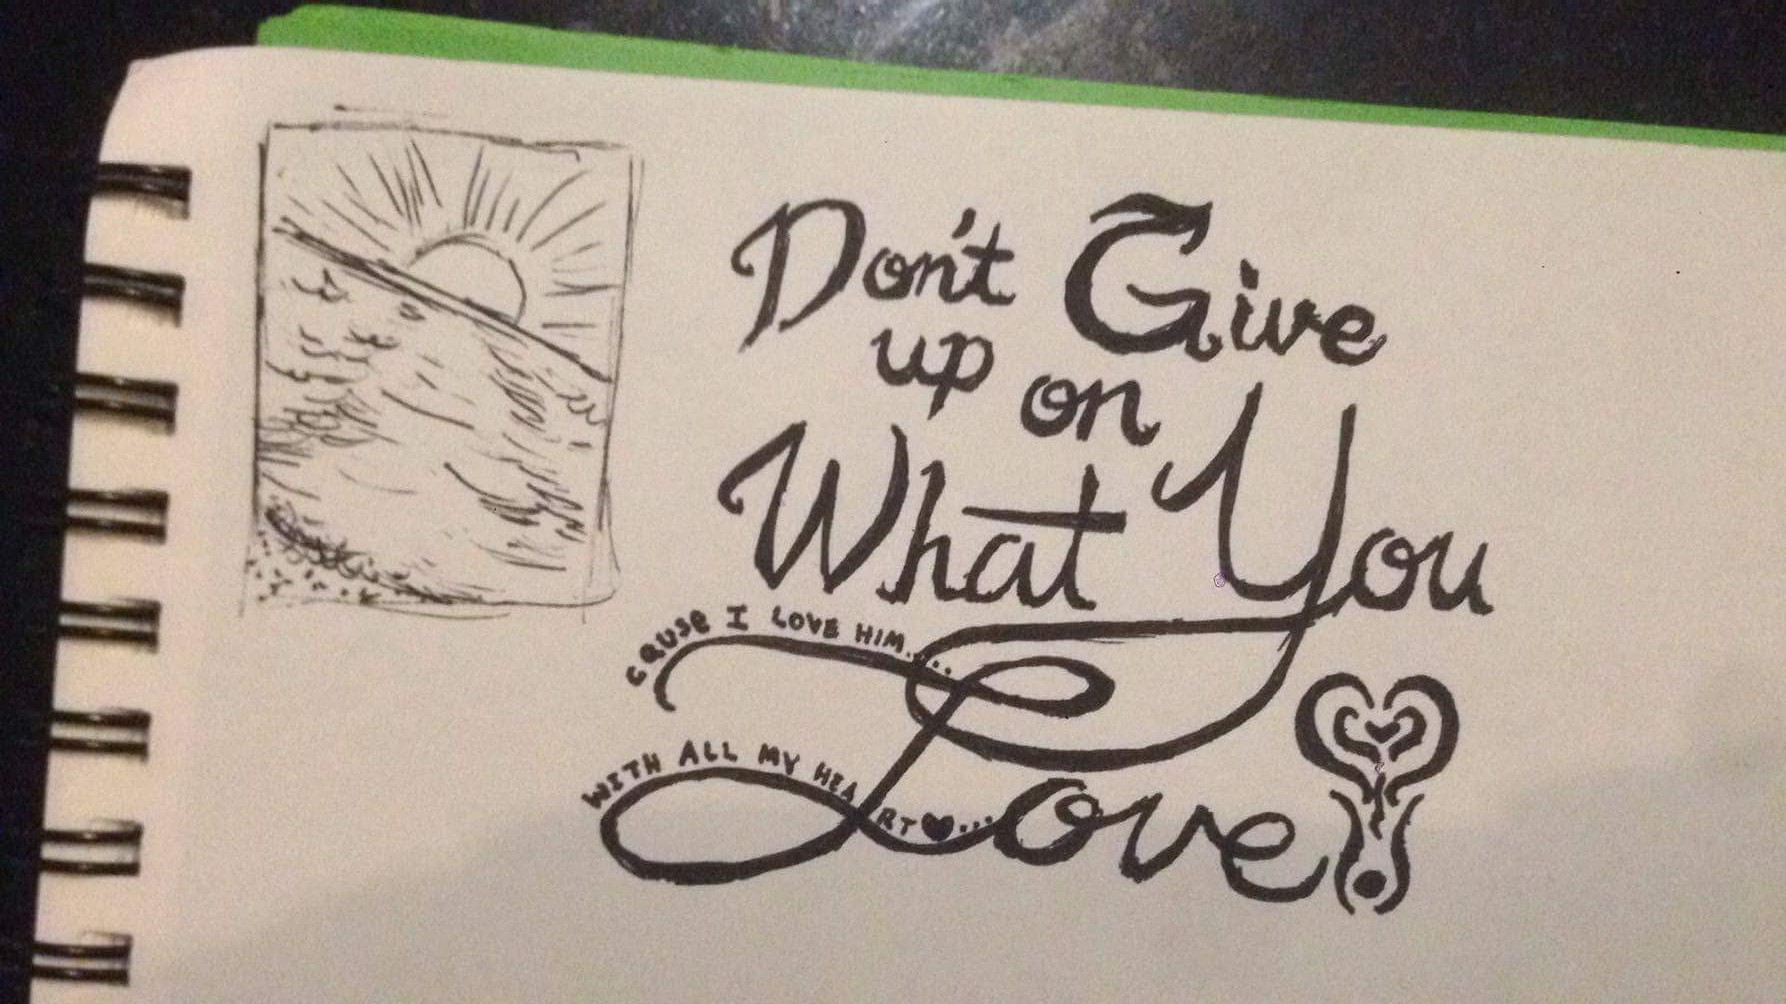 Don't Give
up on
What You
CAUSE I LOVE HIM....
WITH ALL MY HEART♥...
Love!